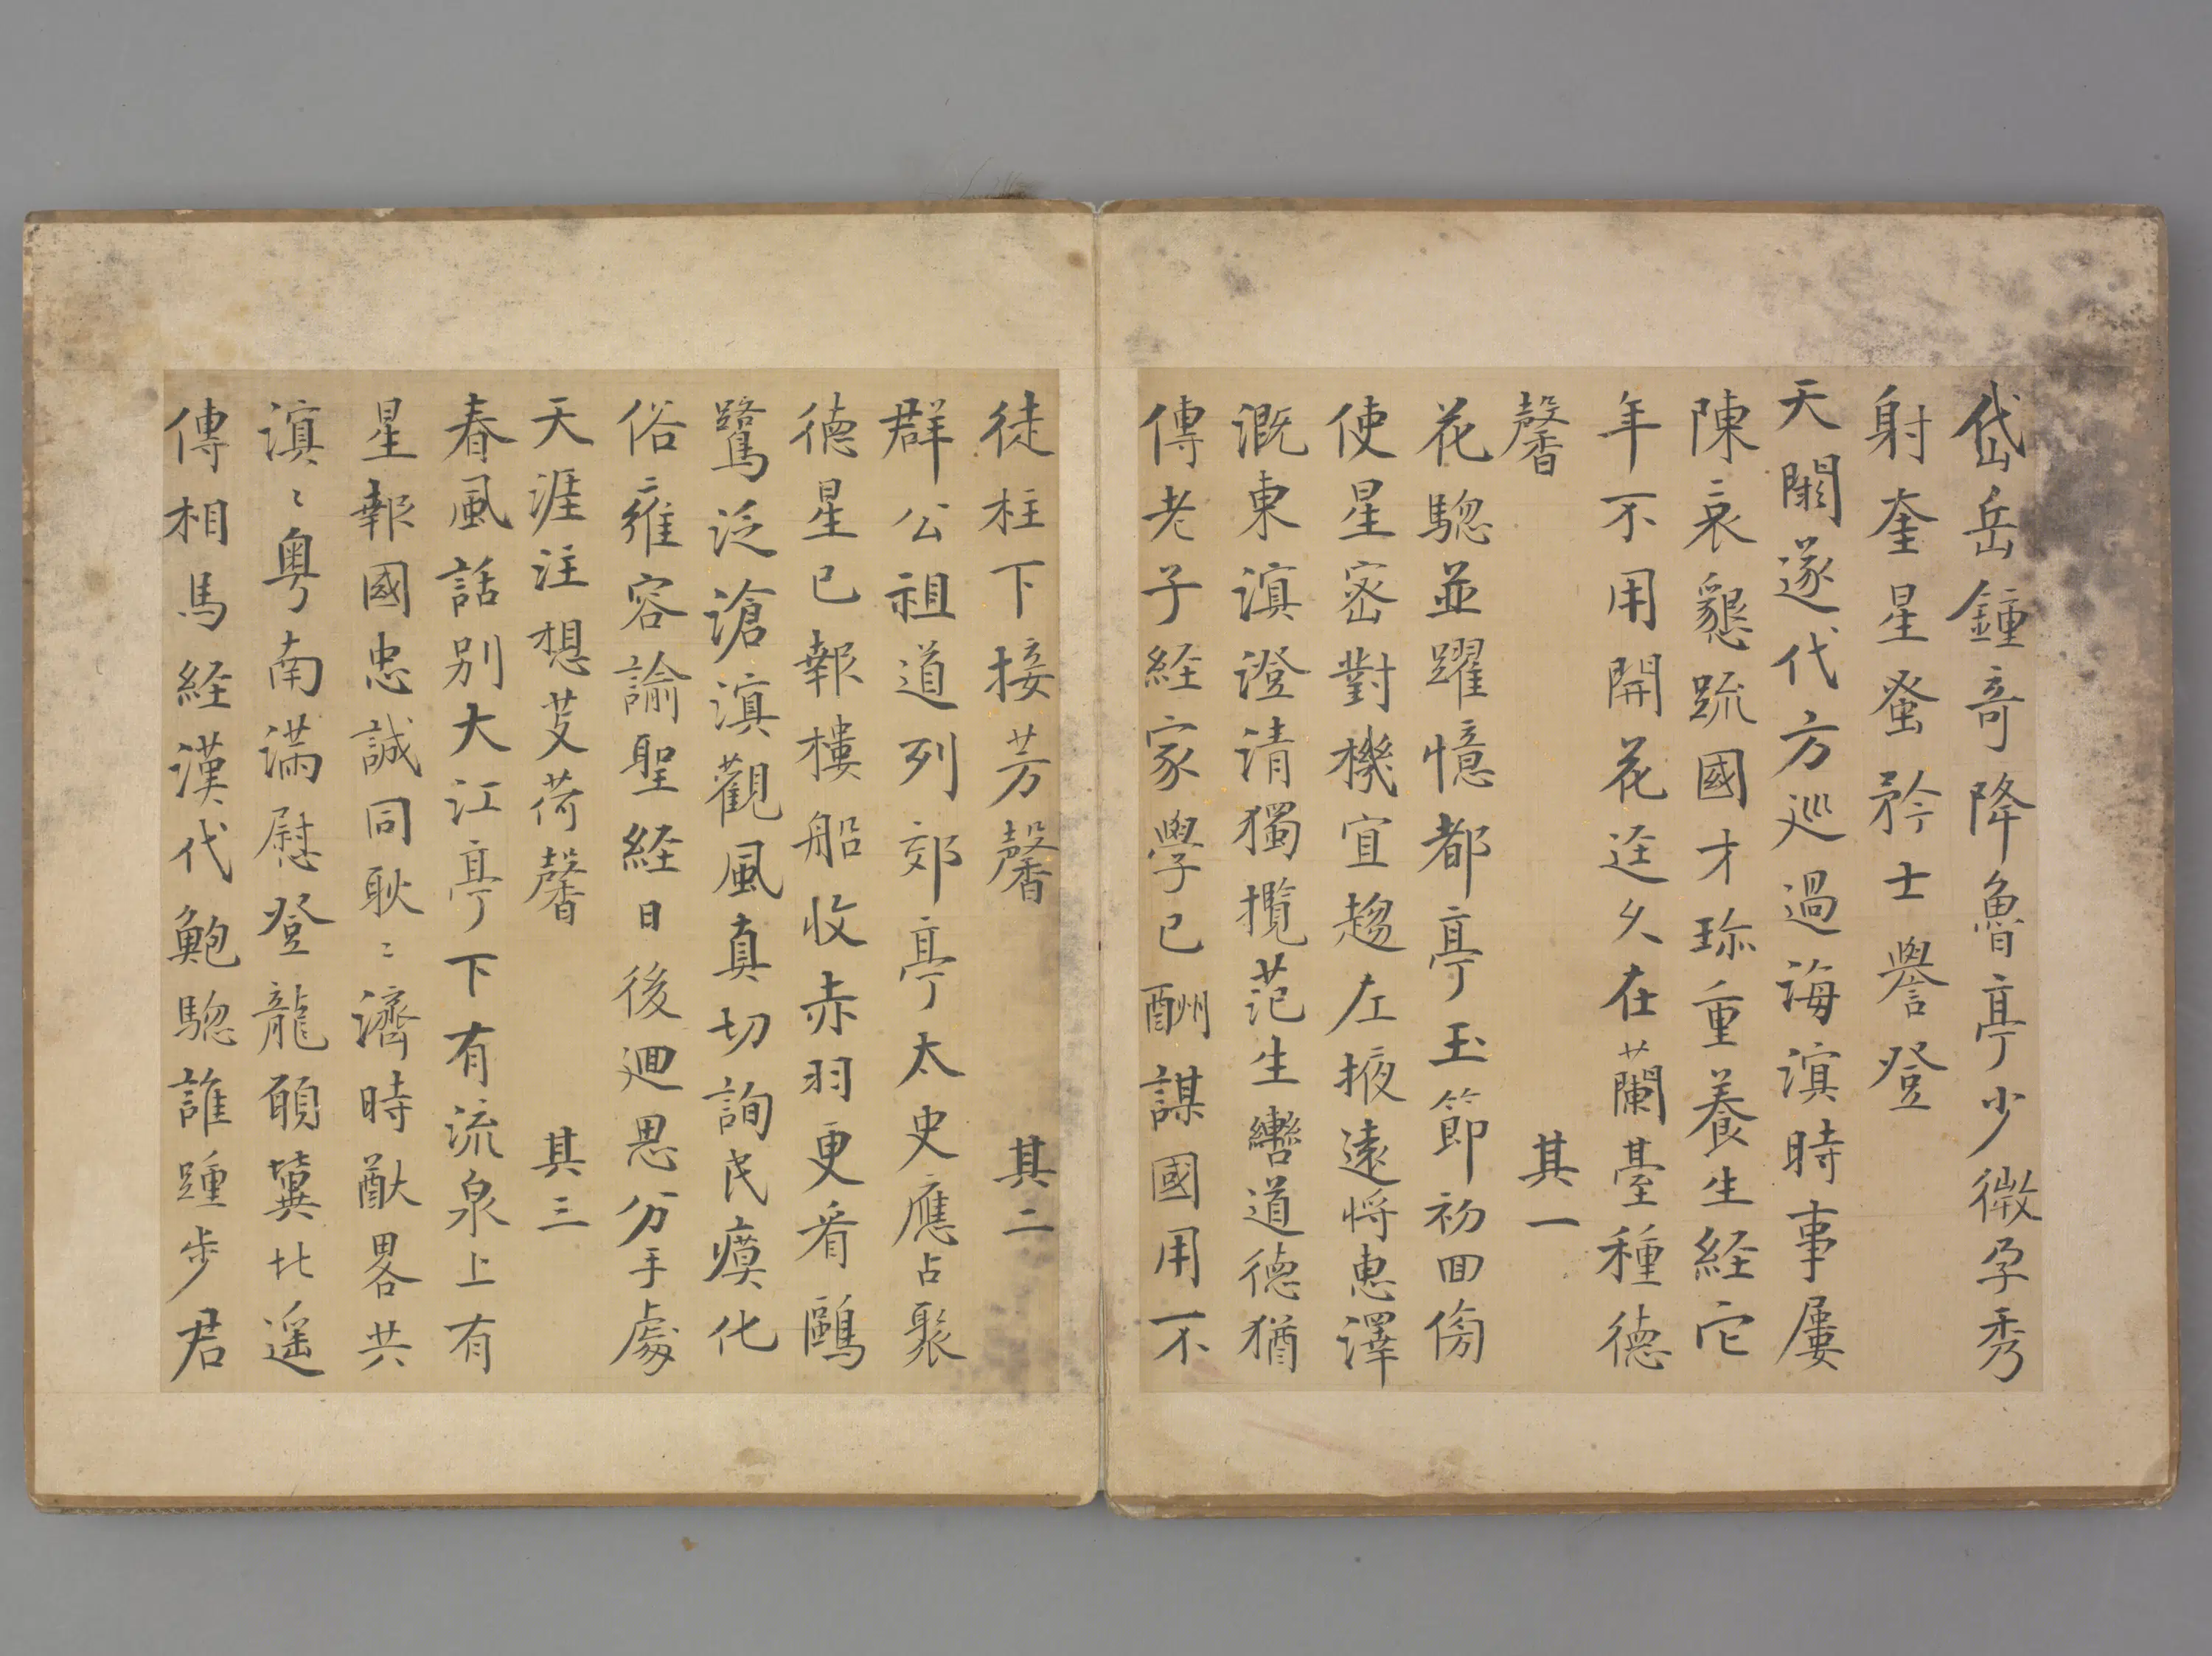 岱岳鍾奇降魯亭少微孕秀
射奎星蚤矜士譽登
天閣遂代方巡過海滇時事屢
陳哀懇疏國才珎重養生經它
年不用開花迳久在蘭臺種德
馨　其一
花驄並躍憶都亭玉節初回傍
使星密對機宜趨左掖遠將惠澤
溉東滇澄清獨攬范生轡道德猶
傳老子経家學已酬謀國用不
徒柱下接芳馨　其二
群公祖道列郊亭太史應占聚
德星已報樓船收赤羽更看鷗
鷺泛滄滇觀風真切詢民瘼化
俗雍容諭聖経日後迴思分手處
天涯注想芰荷馨　其三
春風話別大江亭下有流泉上有
星報國忠誠同耿〻濟時猷畧共
滇〻粵南滿慰登龍願冀北遥
傳相馬経漢代鮑驄誰踵步君